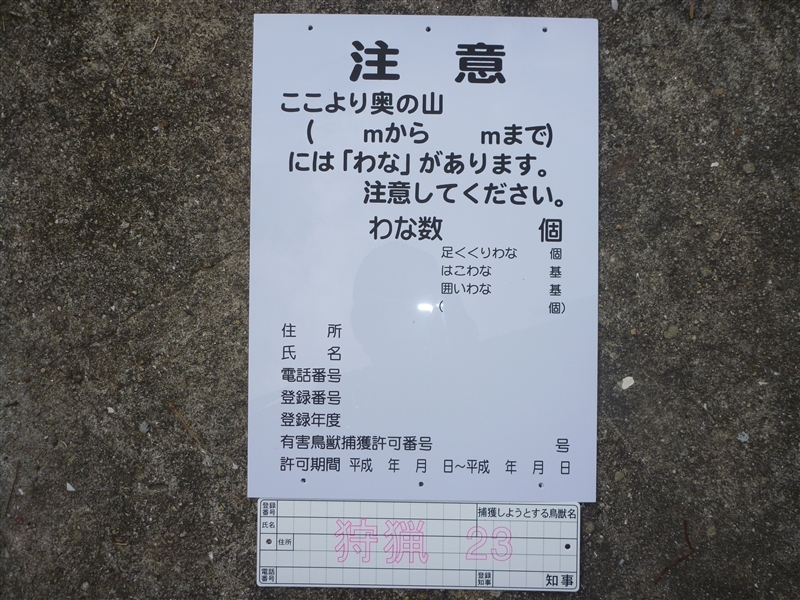 注 意
ここより奥の山
( mから mまで)
には「わな」があります。
注意してください。
わな数 個
足くくりわな 個
はこわな 基
囲いわな 基
( 個)
住 所
氏 名
電話番号
登録番号
登録年度
有害鳥獣捕獲許可番号 号
許可期間 平成 年 月 日~平成 年 月 日
登録番号 捕獲しようとする鳥獣名
氏名
住所
狩猟 23
電話番号 登録知事 知事